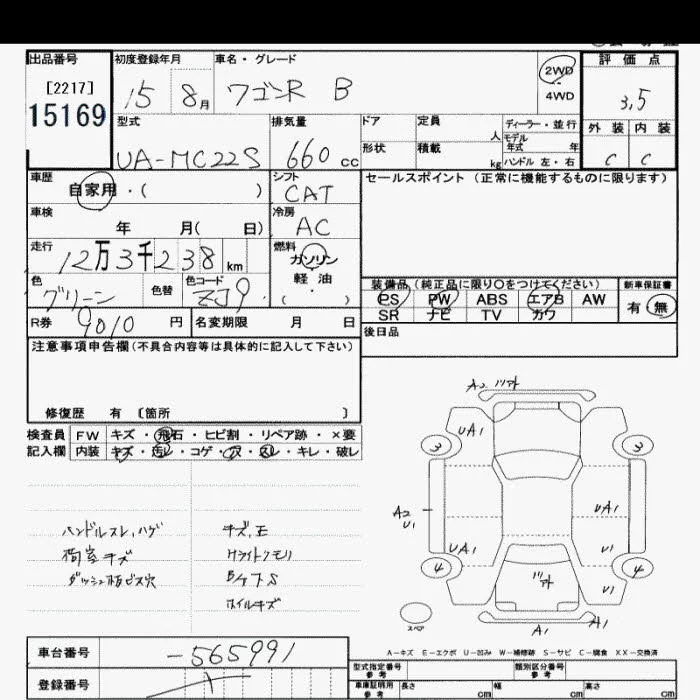 出品番号 初度登録年月 車名・グレード 2WD 評価点
[2217] 15 8月 ワゴンR B 4WD 3,5
15169
型式 排気量 ドア 定員 人 ディーラー・並行 外装 内装
モデル年式 年
UA-MC22S 660cc 形状 積載 kg ハンドル 左・右 C C
車歴 シフト セールスポイント (正常に機能するものに限ります)
自家用・( ) CAT
車検 冷房
年 月( 日) AC
走行 燃料
12万3千238km ガソリン
軽油
色 色替 色コード ・( )
グリーン ZJ9
装備品 (純正品に限り○をつけてください) 新車保証書
PS PW ABS エアB AW 有・無
SR ナビ TV カワ
R券 9010円 名変期限 月 日
後日品
注意事項申告欄(不具合内容等は具体的に記入して下さい)
修復歴 有 〔箇所 〕
検査員 FW キズ・飛石・ヒビ割・リペア跡・×要
記入欄 内装 キズ・汚レ・コゲ・穴・スレ・キレ・破レ
A2 ツアト
UA1
3 3
ハンドルスレ,ハゲ キズ,E
荷室キズ Hライトクモリ
ダッシュ板ビス穴 BケアS
ホイルキズ
A2 UA1
U1
UA1 U1
4 4
ツアト
スペア
A1 A1
A-キズ E-エクボ U-凹み W-補修跡 S-サビ C-腐食 XX-交換済
車台番号 -565991
登録番号
型式指定番号 参考 類別区分番号 参考
車庫証明用 参考 長さ cm 幅 cm 高さ cm